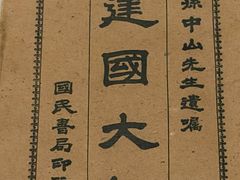 孫中山先生遺嘱
建國大
國民書局印